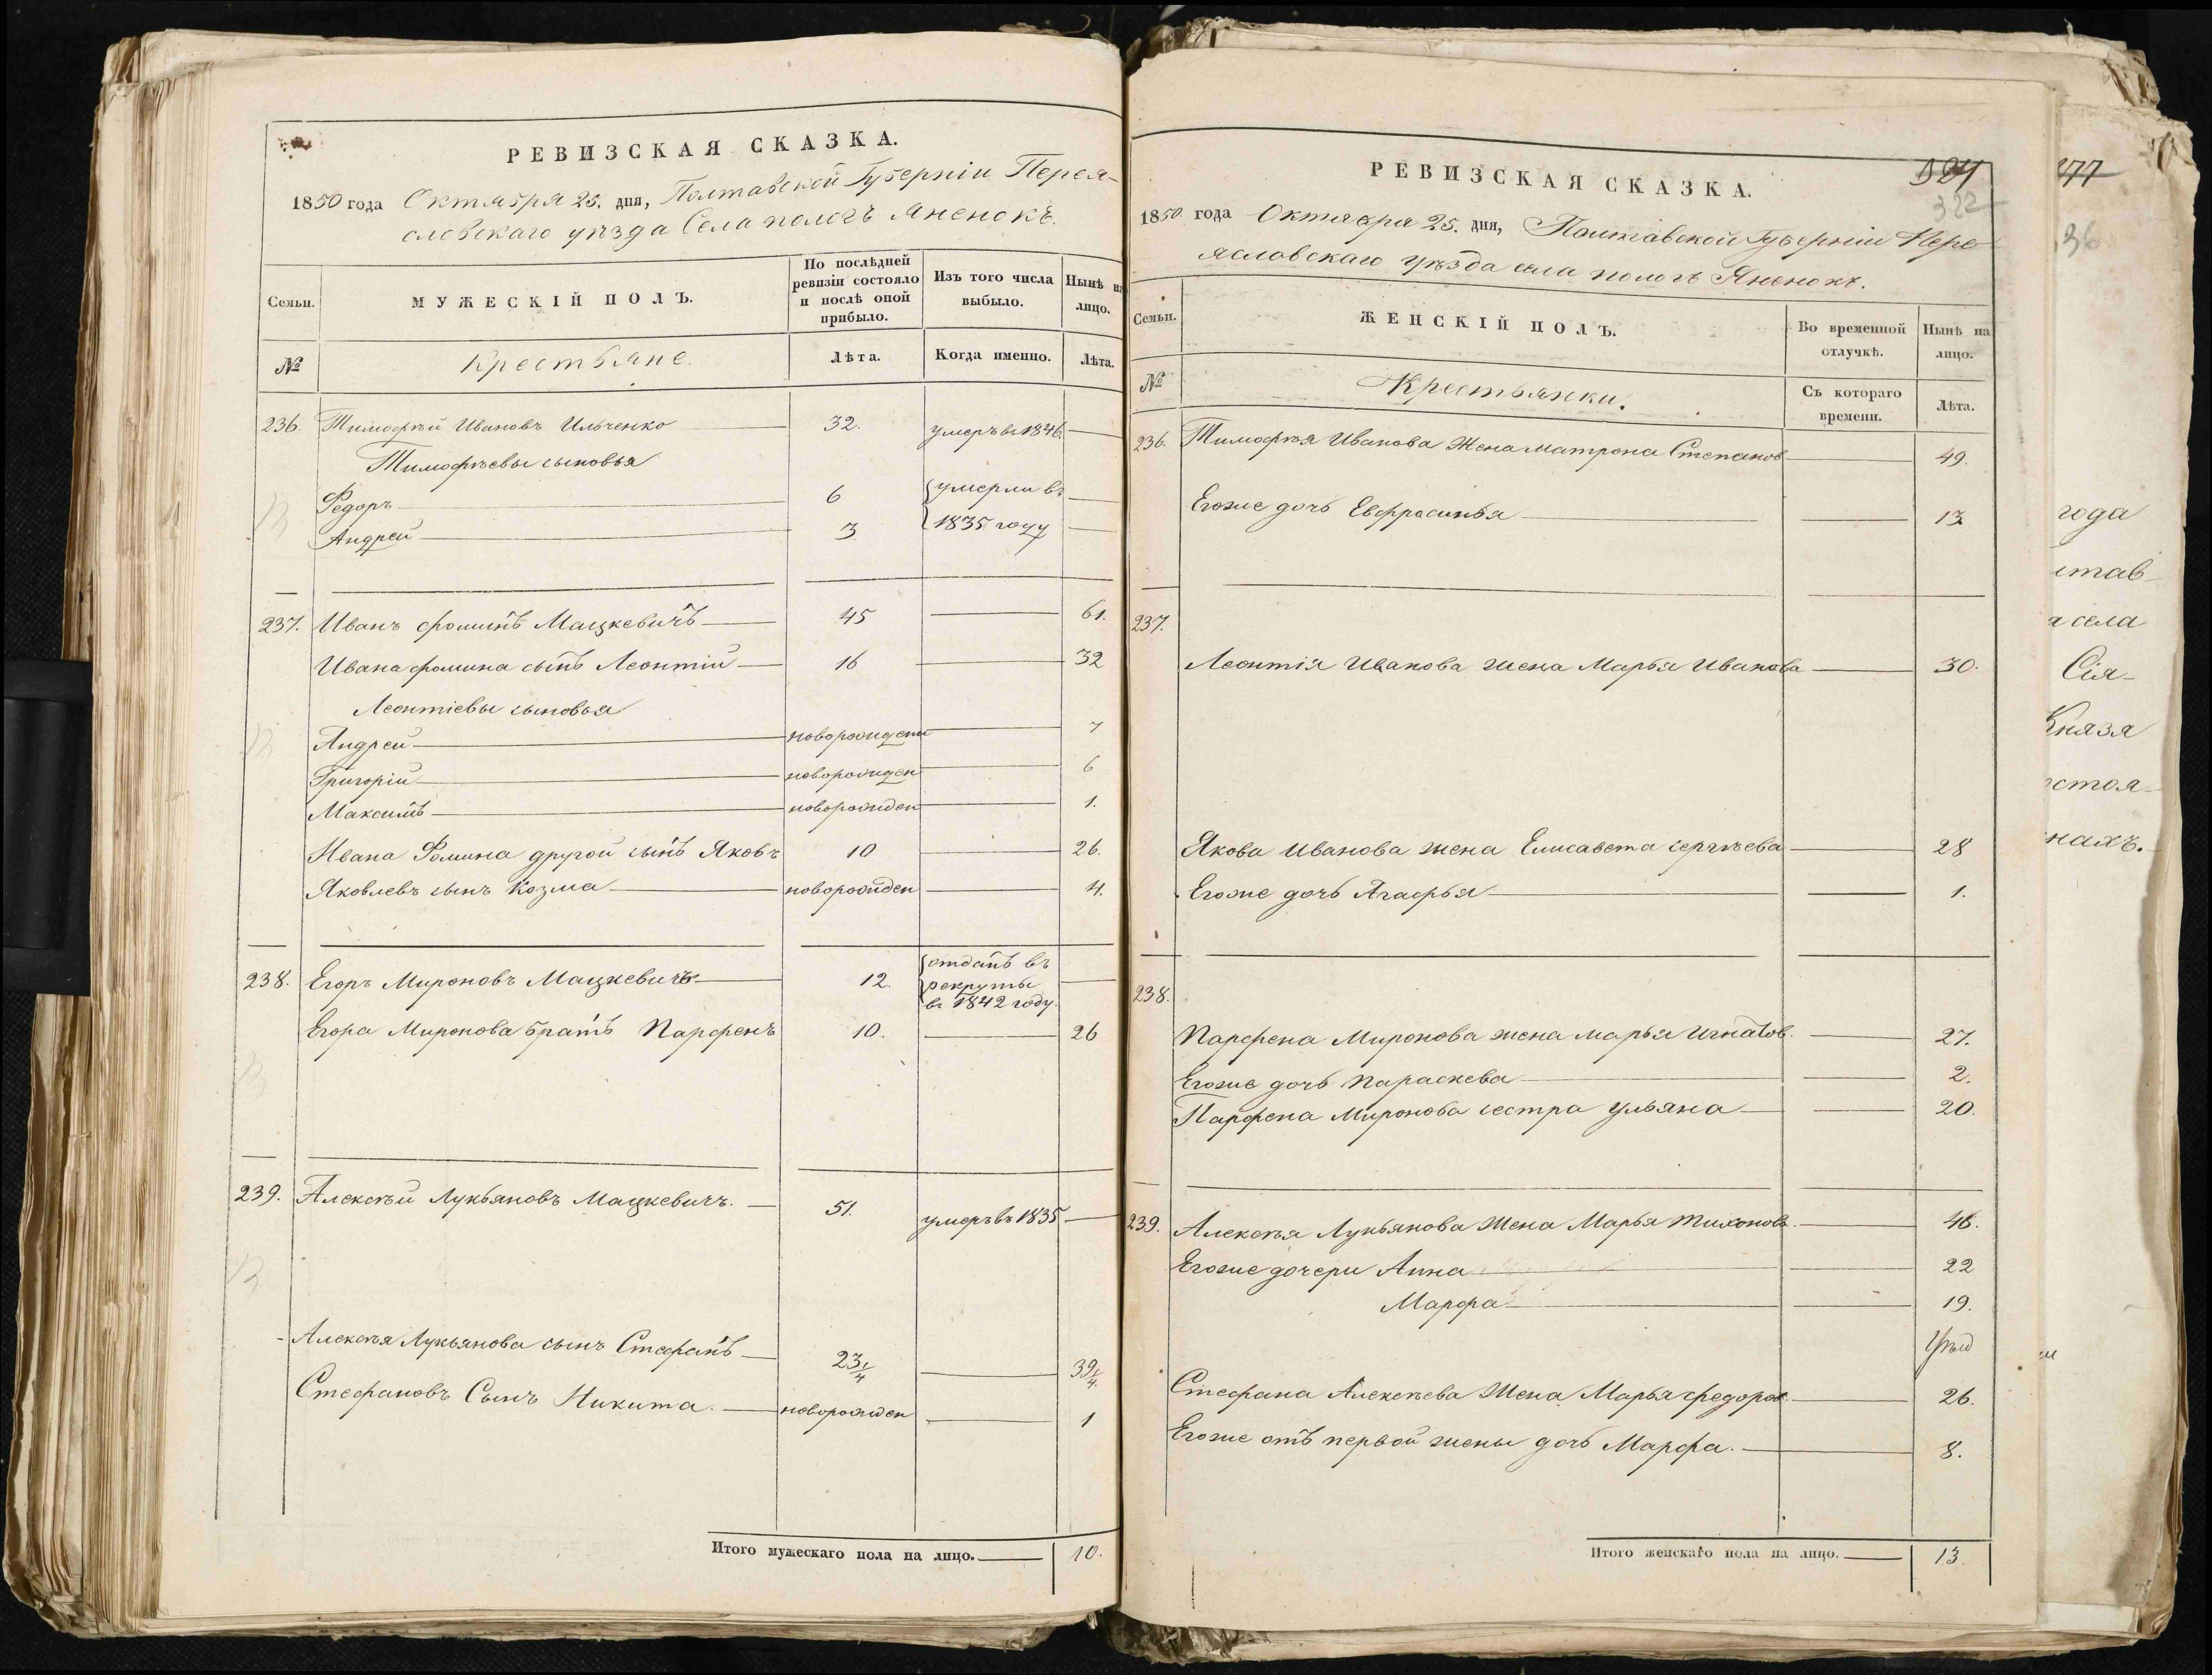 РЕВИЗСКАЯ СКАЗКА.
1850 года Октября 25. дня, Полтавской Губерніи Перея-
словскаго уѣзда Села пологъ Яненокъ.
Семьи.
МУЖЕСКІЙ ПОЛЪ.
По послѣдней ревизіи состояло и послѣ оной прибыло.
Изъ того числа выбыло.
Нынѣ на лицо.
№
Крестьяне.
Лѣта.
Когда именно.
Лѣта.
236. Тимофѣй Ивановъ Ильченко 32. умеръ въ 1846.
Тимофѣевы сыновья
Федоръ 6 умерли въ
Андрей 3 1835 году
237. Иванъ Фоминъ Мацкевичъ 45 61.
Ивана Фомина сынъ Леонтій 16 32
Леонтіевы сыновья
Андрей новорожден 7
Григорій новорожден 6
Максимъ новорожден 1.
Ивана Фомина другой сынъ Яковъ 10 26.
Яковлевъ сынъ Козма новорожден 4.
238. Егоръ Мироновъ Мацкевичъ 12. отданъ въ рекруты въ 1842 году.
Егора Миронова братъ Парфенъ 10. 26
239. Алексѣй Лукьяновъ Мацкевичъ. 51. умеръ въ 1835
Алексѣя Лукьянова сынъ Стефанъ 23 1/4 39 1/4.
Стефановъ Сынъ Никита. новорожден 1
Итого мужескаго пола на лицо. 10.
РЕВИЗСКАЯ СКАЗКА.
322
1850 года Октября 25. дня, Полтавской Губерніи Пере-
яславскаго уѣзда села пологъ Яненокъ.
Семьи.
ЖЕНСКІЙ ПОЛЪ.
Во временной отлучкѣ.
Нынѣ на лицо.
№
Крестьянки.
Съ котораго времени.
Лѣта.
236. Тимофѣя Иванова Жена Матрона Степанов 49.
Егоже дочь Евфросинья 13
237.
Леонтія Иванова жена Марья Иванова 30.
Якова Иванова жена Елисавета Сергѣева 28
Егоже дочь Агафья 1.
238.
Парфена Миронова жена Марья Игнатов. 27.
Егоже дочь Параскева 2.
Парфена Миронова сестра Ульяна 20.
239. Алексѣя Лукьянова Жена Марья Тихонов. 46.
Егоже дочери Анна 22
Марфа 19.
Стефана Алексѣева Жена Марья Федоров. 26.
Егоже отъ первой жены дочь Марфа. 8.
Итого женскаго пола на лицо. 13.
77
36
года
лтав-
а села
Сія-
Князя
остоя-
нахъ.